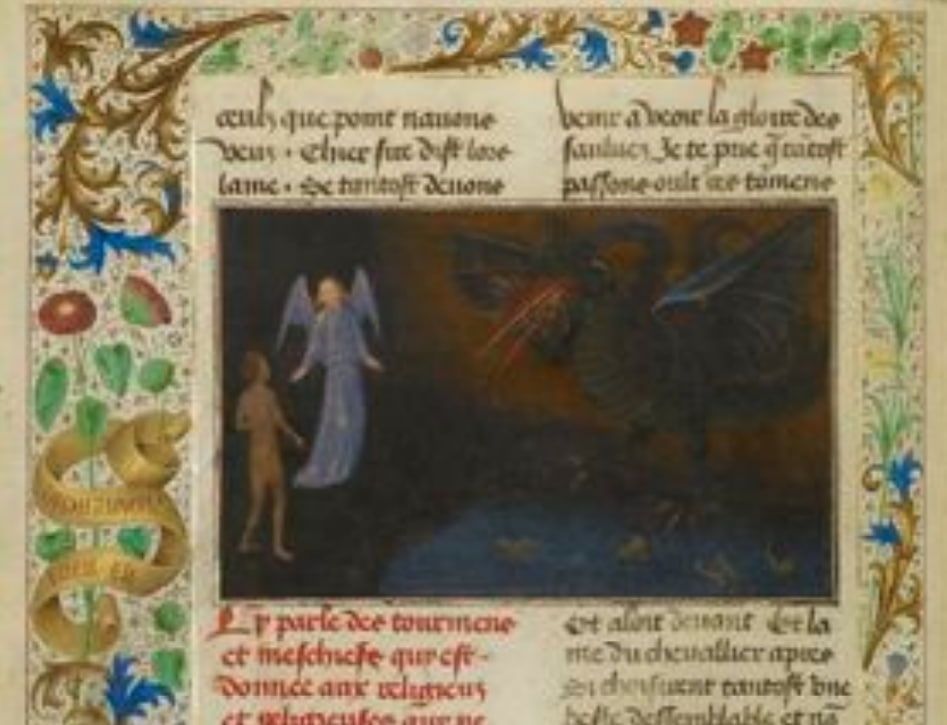 ceulx que point nauons
veus · Et lors fut dist lors
lame · Se tantost deuons
venir a veoir la gloire des
sauluez Je te prie q̃ tātost
passons oult ces tormens
Cy parle des tourmens
et meschiefz qui est
donnee aux religieux
et religieuses qui ne
Et aloit deuant Et la
me du cheuallier apres
Si choisirent tantost vne
beste dessemblable et